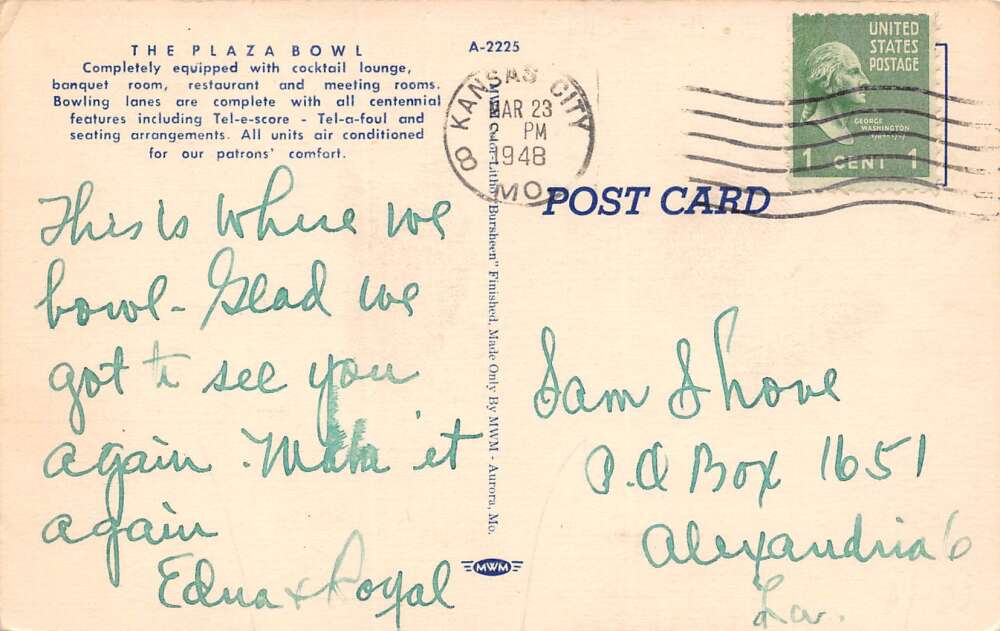 THE PLAZA BOWL
Completely equipped with cocktail lounge,
banquet room, restaurant and meeting rooms.
Bowling lanes are complete with all centennial
features including Tel-e-score - Tel-a-foul and
seating arrangements. All units air conditioned
for our patrons' comfort.
This is where we
bowl - Glad we
got to see you
again. Make it
again
Edna & Royal
A-2225
KANSAS CITY
MAR 23
PM
1948
MO.
8
"Bursheen" Finished, Made Only By MWM - Aurora, Mo.
MWM
UNITED
STATES
POSTAGE
GEORGE
WASHINGTON
1 CENT 1
POST CARD
Sam Shove
P.O Box 1651
Alexandria
La.